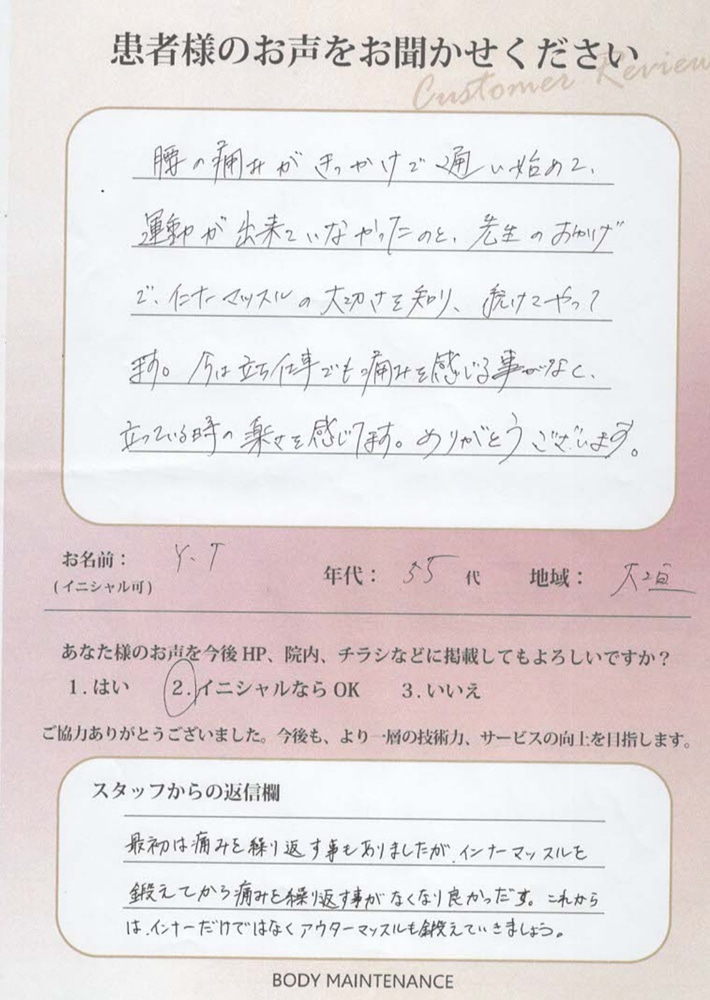 患者様のお声をお聞かせください
Customer Review
腰の痛みがきっかけで通い始めて、
運動が出来ていなかったのと、先生のおかげ
で、インナーマッスルの大切さを知り、続けてやって
ます。今は立ち仕事でも痛みを感じる事がなく、
立っている時の楽さを感じてます。ありがとうございます。
お名前： Y.T
(イニシャル可)
年代： 55 代 地域： 大垣
あなた様のお声を今後 HP、院内、チラシなどに掲載してもよろしいですか？
1. はい 2. イニシャルなら OK 3. いいえ
ご協力ありがとうございました。今後も、より一層の技術力、サービスの向上を目指します。
スタッフからの返信欄
最初は痛みを繰り返す事もありましたが、インナーマッスルを
鍛えてから痛みを繰り返す事がなくなり良かっだす。これから
は、インナーだけではなくアウターマッスルも鍛えていきましょう。
BODY MAINTENANCE